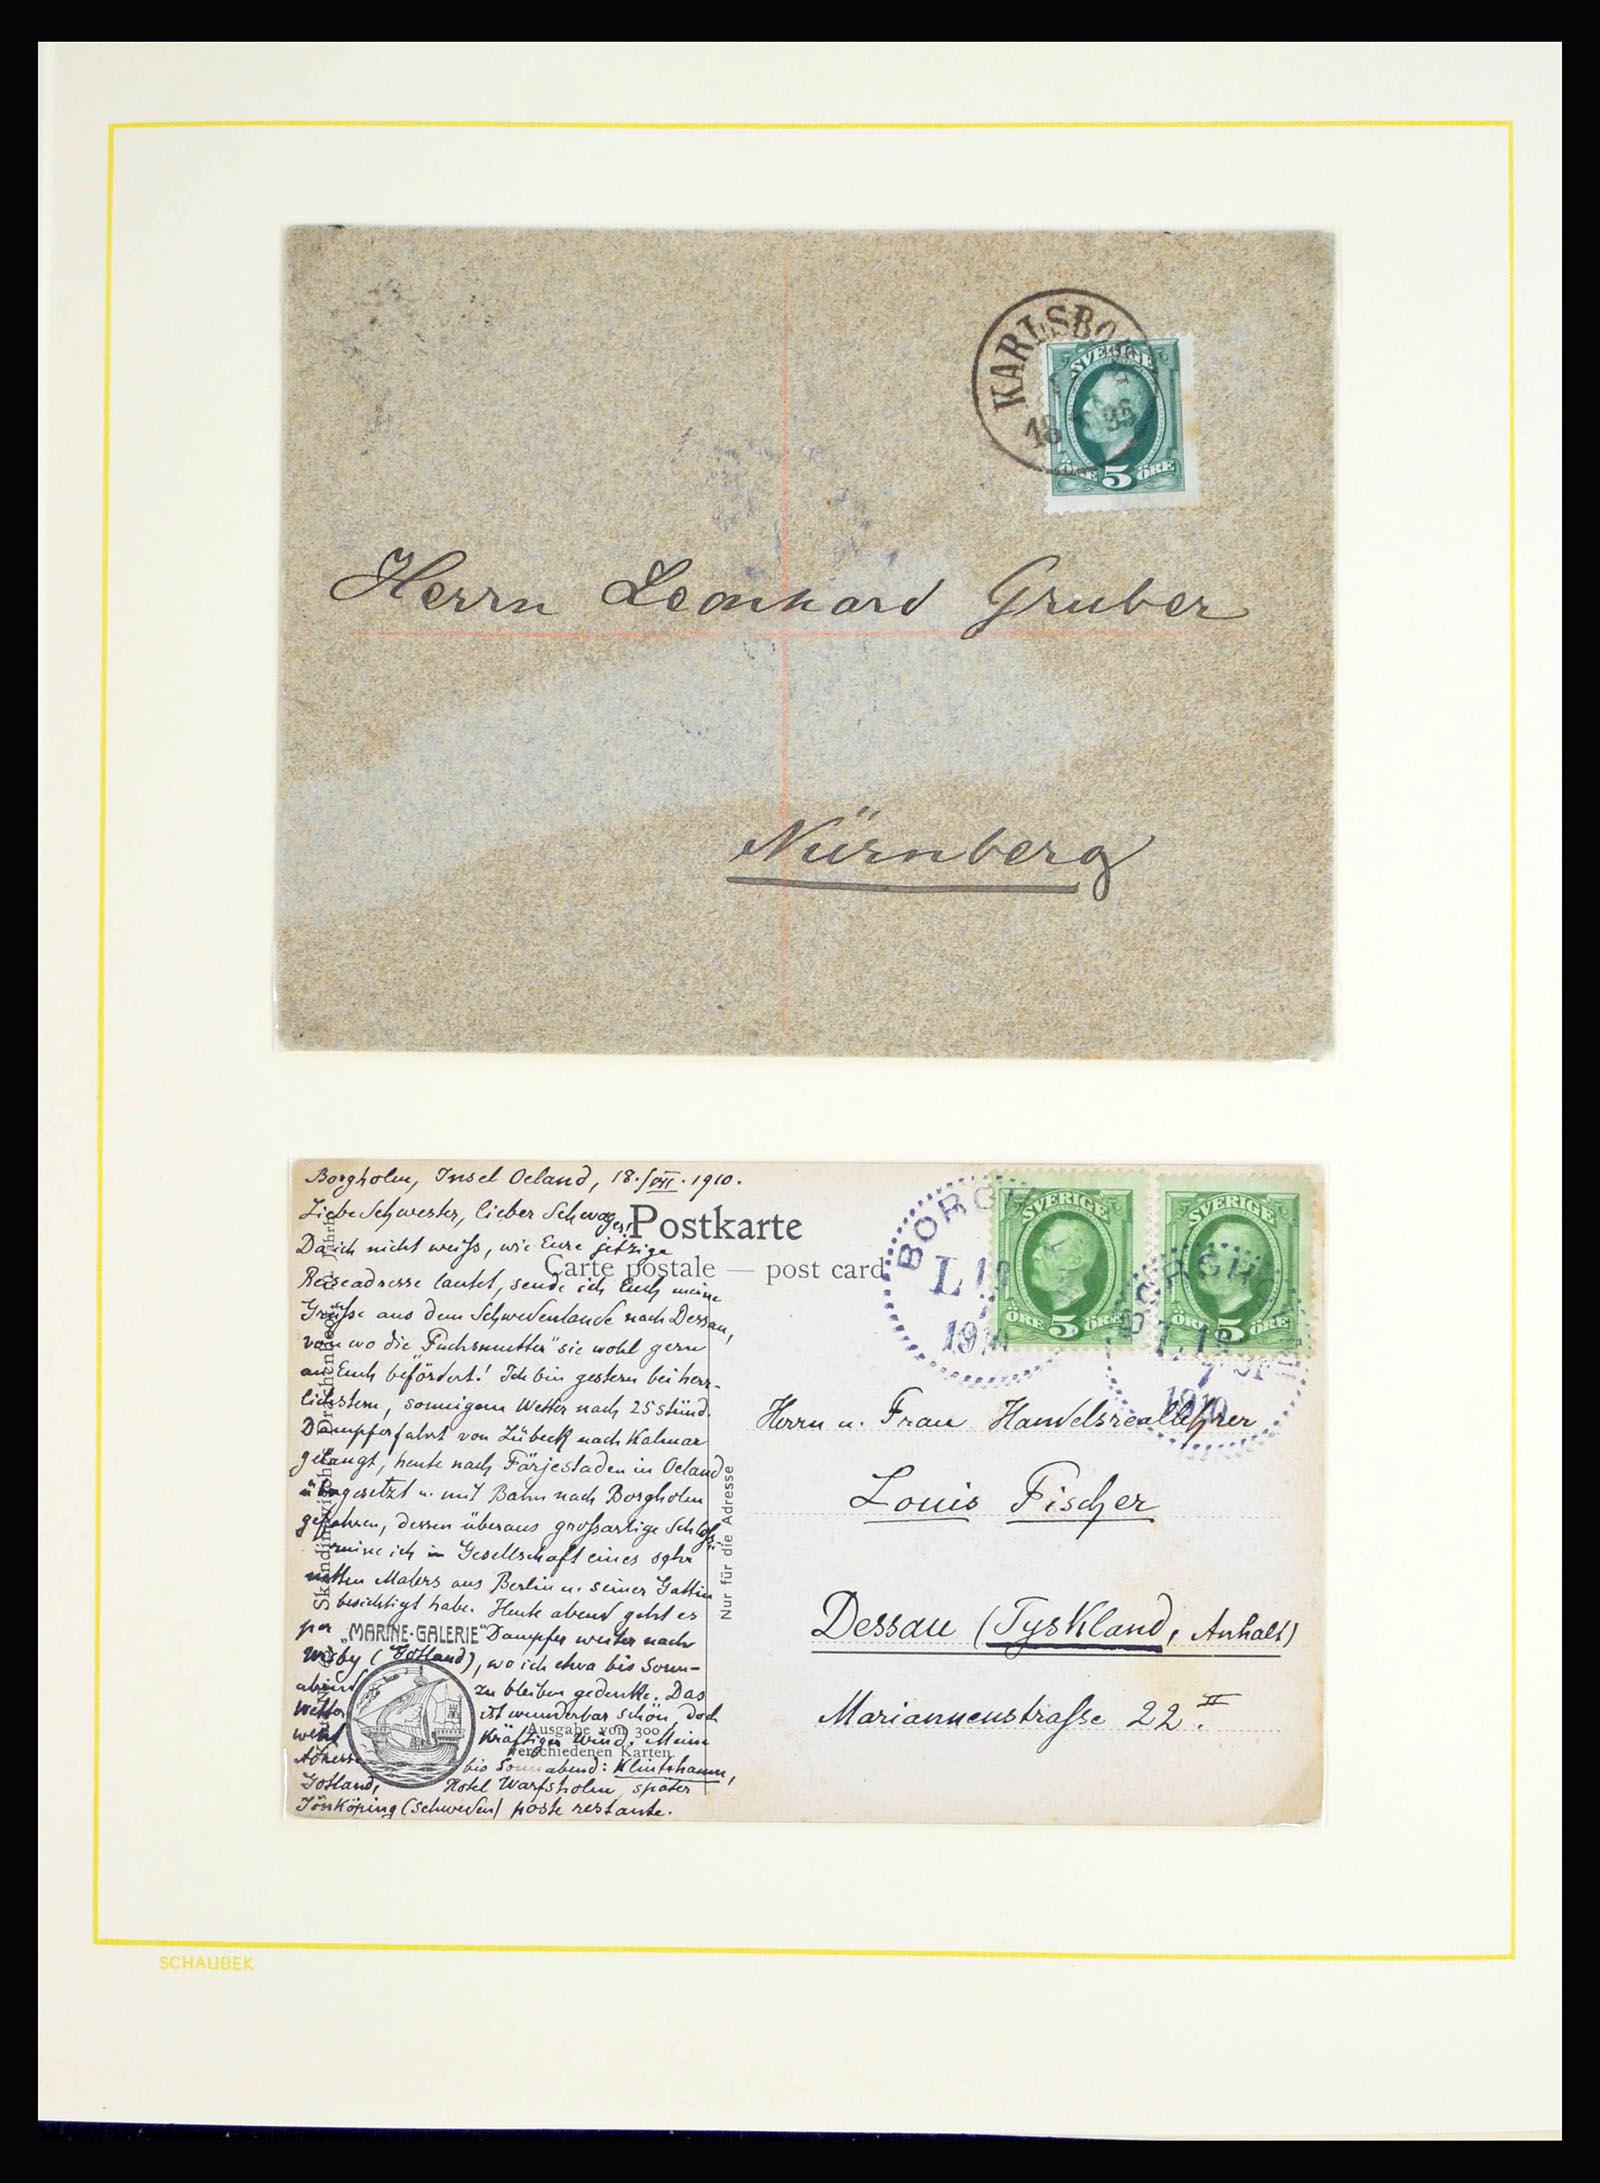 KARLSBO
18 95
SVERIGE
ÖRE 5 ÖRE
Herrn Leonhard Gruber
Nürnberg
Borgholm, Insel Oeland, 18./VII.1910.
Liebe Schwester, lieber Schwager!
Da ich nicht weiß, wie Eure jetzige
Reiseadresse lautet, sende ich Euch meine
Grüße aus dem Schwedenlande nach Dessau,
von wo die "Fuchsmutter" sie wohl gern
an Euch befördert! Ich bin gestern bei herr-
lichstem, sonnigem Wetter nach 25 stünd.
Dampferfahrt von Lübeck nach Kalmar
gelangt, heute nach Färjestaden in Oeland
übergesetzt u. mit Bahn nach Borgholm
gefahren, dessen überaus großartige Schloß-
ruine ich in Gesellschaft eines sehr
netten Malers aus Berlin u. seiner Gattin
besichtigt habe. Heute abend geht es
per Dampfer weiter nach
Wisby (Gotland), wo ich etwa bis Sonn-
abend zu bleiben gedenke. Das
Wetter ist wunderbar schön, doch
weht kräftiger Wind. Meine
Adresse bis Sonnabend: Klintehamn,
Gotland, Hotel Warfsholm, später
Jönköping (Schweden) poste restante.
Postkarte
Carte postale — post card
Nur für die Adresse
"MARINE-GALERIE"
Ausgabe von 300
verschiedenen Karten
BORGH
L 18
1910
SVERIGE
ÖRE 5 ÖRE
SVERIGE
ÖRE 5 ÖRE
BORGHO
18
7
1910
Herrn u. Frau Handelsreallehrer
Louis Fischer
Dessau (Tyskland, Anhalt)
Mariannenstraße 22 II.
SCHAUBEK